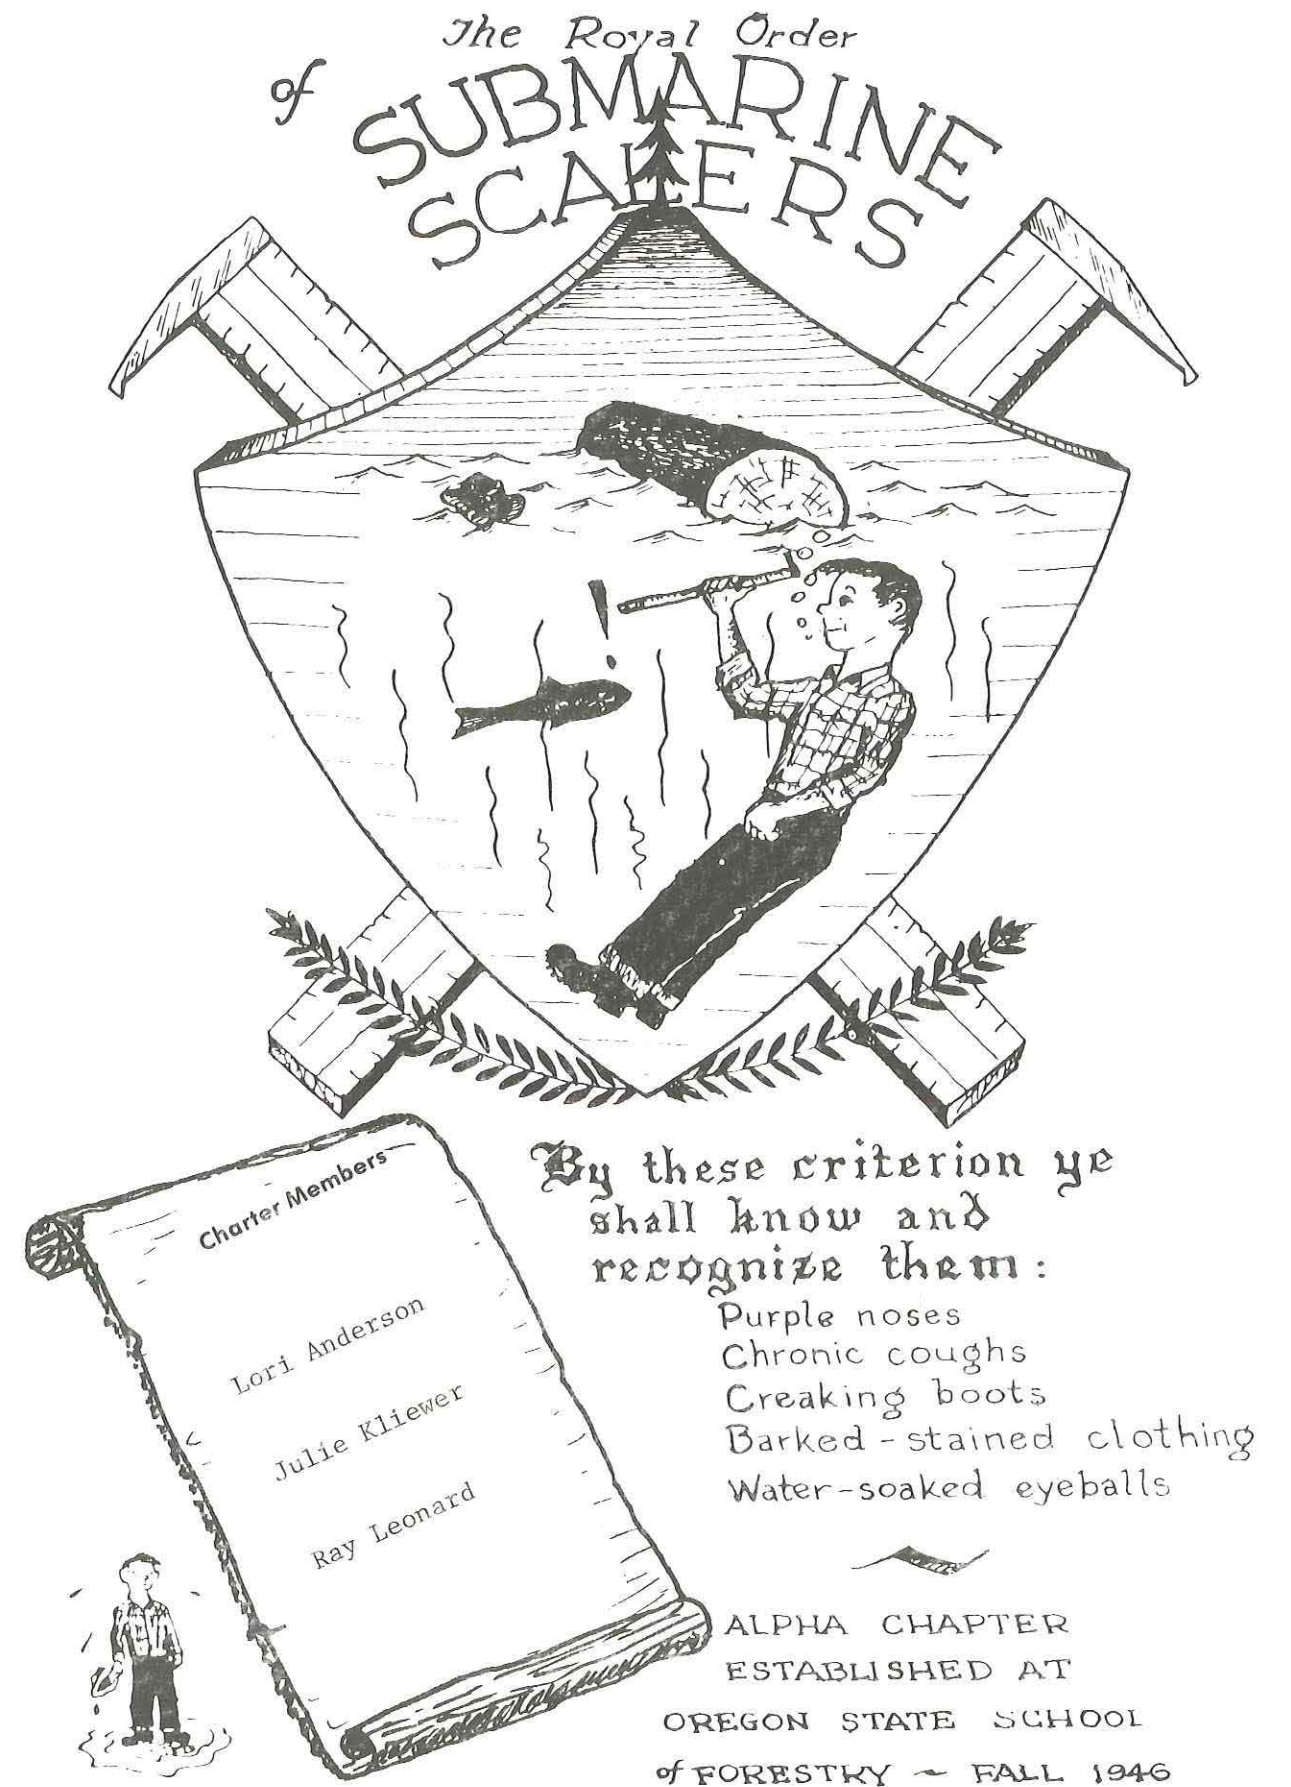 The Royal Order
of SUBMARINE
SCALERS
Charter Members
Lori Anderson
Julie Kliewer
Ray Leonard
By these criterion ye
shall know and
recognize them:
Purple noses
Chronic coughs
Creaking boots
Barked-stained clothing
Water-soaked eyeballs
ALPHA CHAPTER
ESTABLISHED AT
OREGON STATE SCHOOL
of FORESTRY ~ FALL 1946